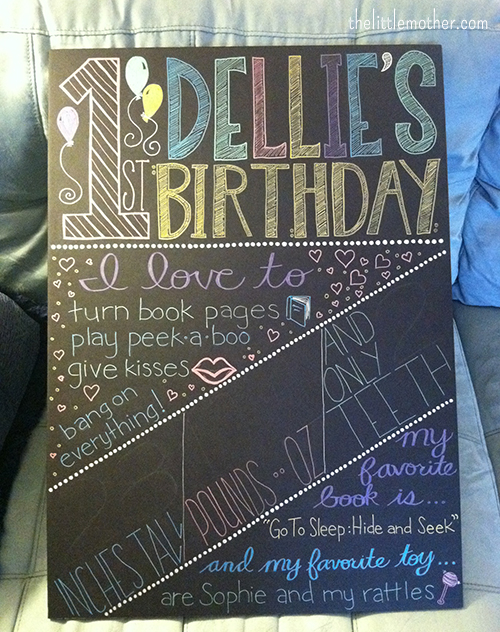 thelittlemother.com
1ST DELLIE'S
BIRTHDAY
I love to
turn book pages
play peek-a-boo
give kisses
bang on
everything!
INCHES TALL
POUNDS .. OZ
AND
ONLY
TEETH
my
favorite
book is...
"Go To Sleep: Hide and Seek"
and my favorite toy...
are Sophie and my rattles